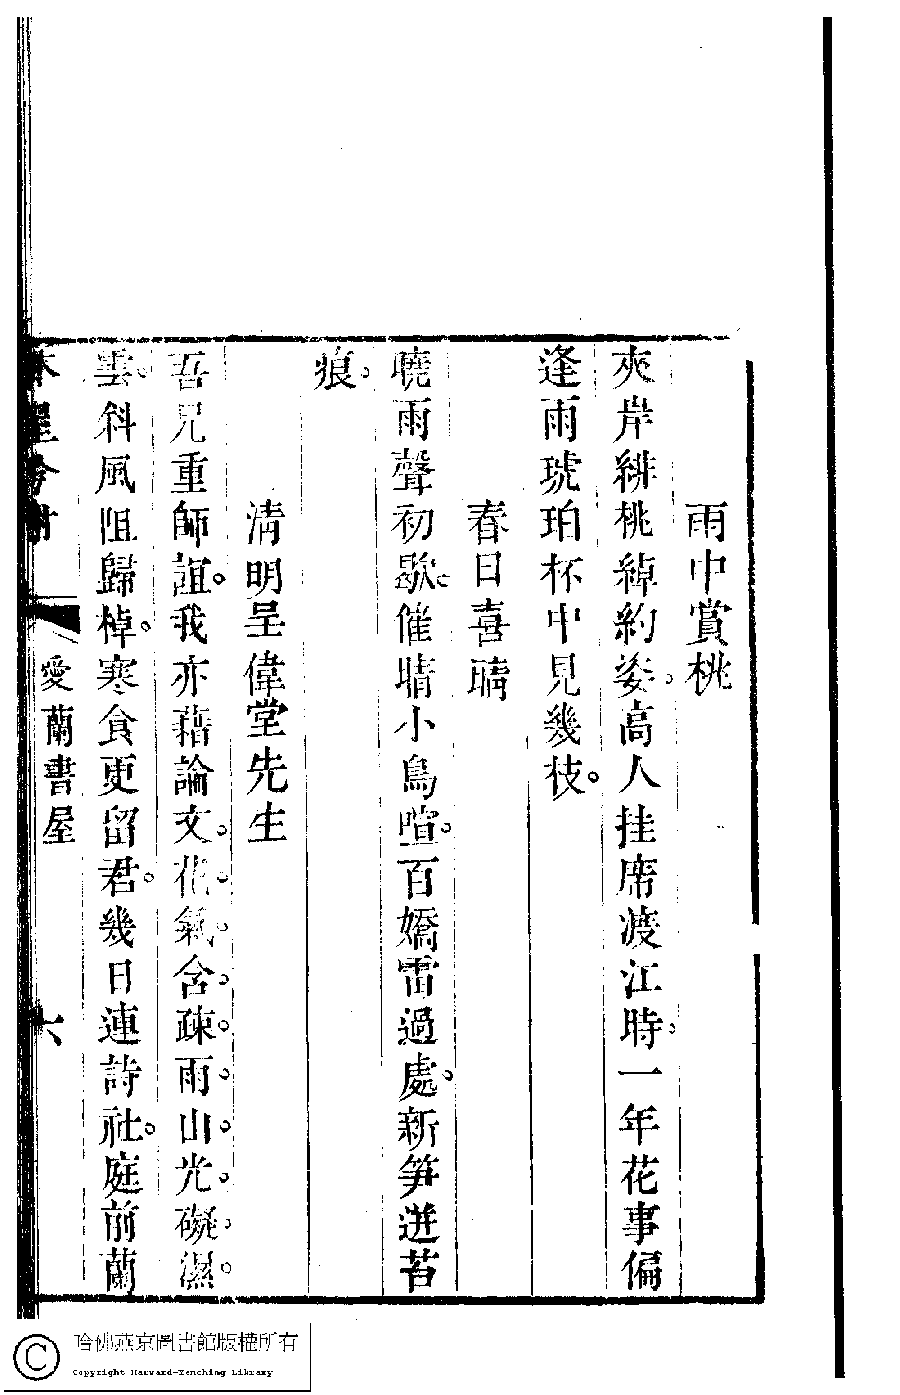 雨中賞桃
夾岸緋桃綽約姿。高人挂席渡江時。一年花事偏
逢雨琥珀杯中見幾枝。
春日喜晴
曉雨聲初歇。催晴小鳥喧。百嬌雷過處。新笋迸苔
痕。
清明呈偉堂先生
吾兄重師誼。我亦藉論文。花。氣。含。疎。雨。山。光。礙。濕。
雲。斜風阻歸棹。寒食更留君。幾日連詩社。庭前蘭
愛蘭書屋
六
哈佛燕京圖書館版權所有
Copyright Harvard-Yenching Library